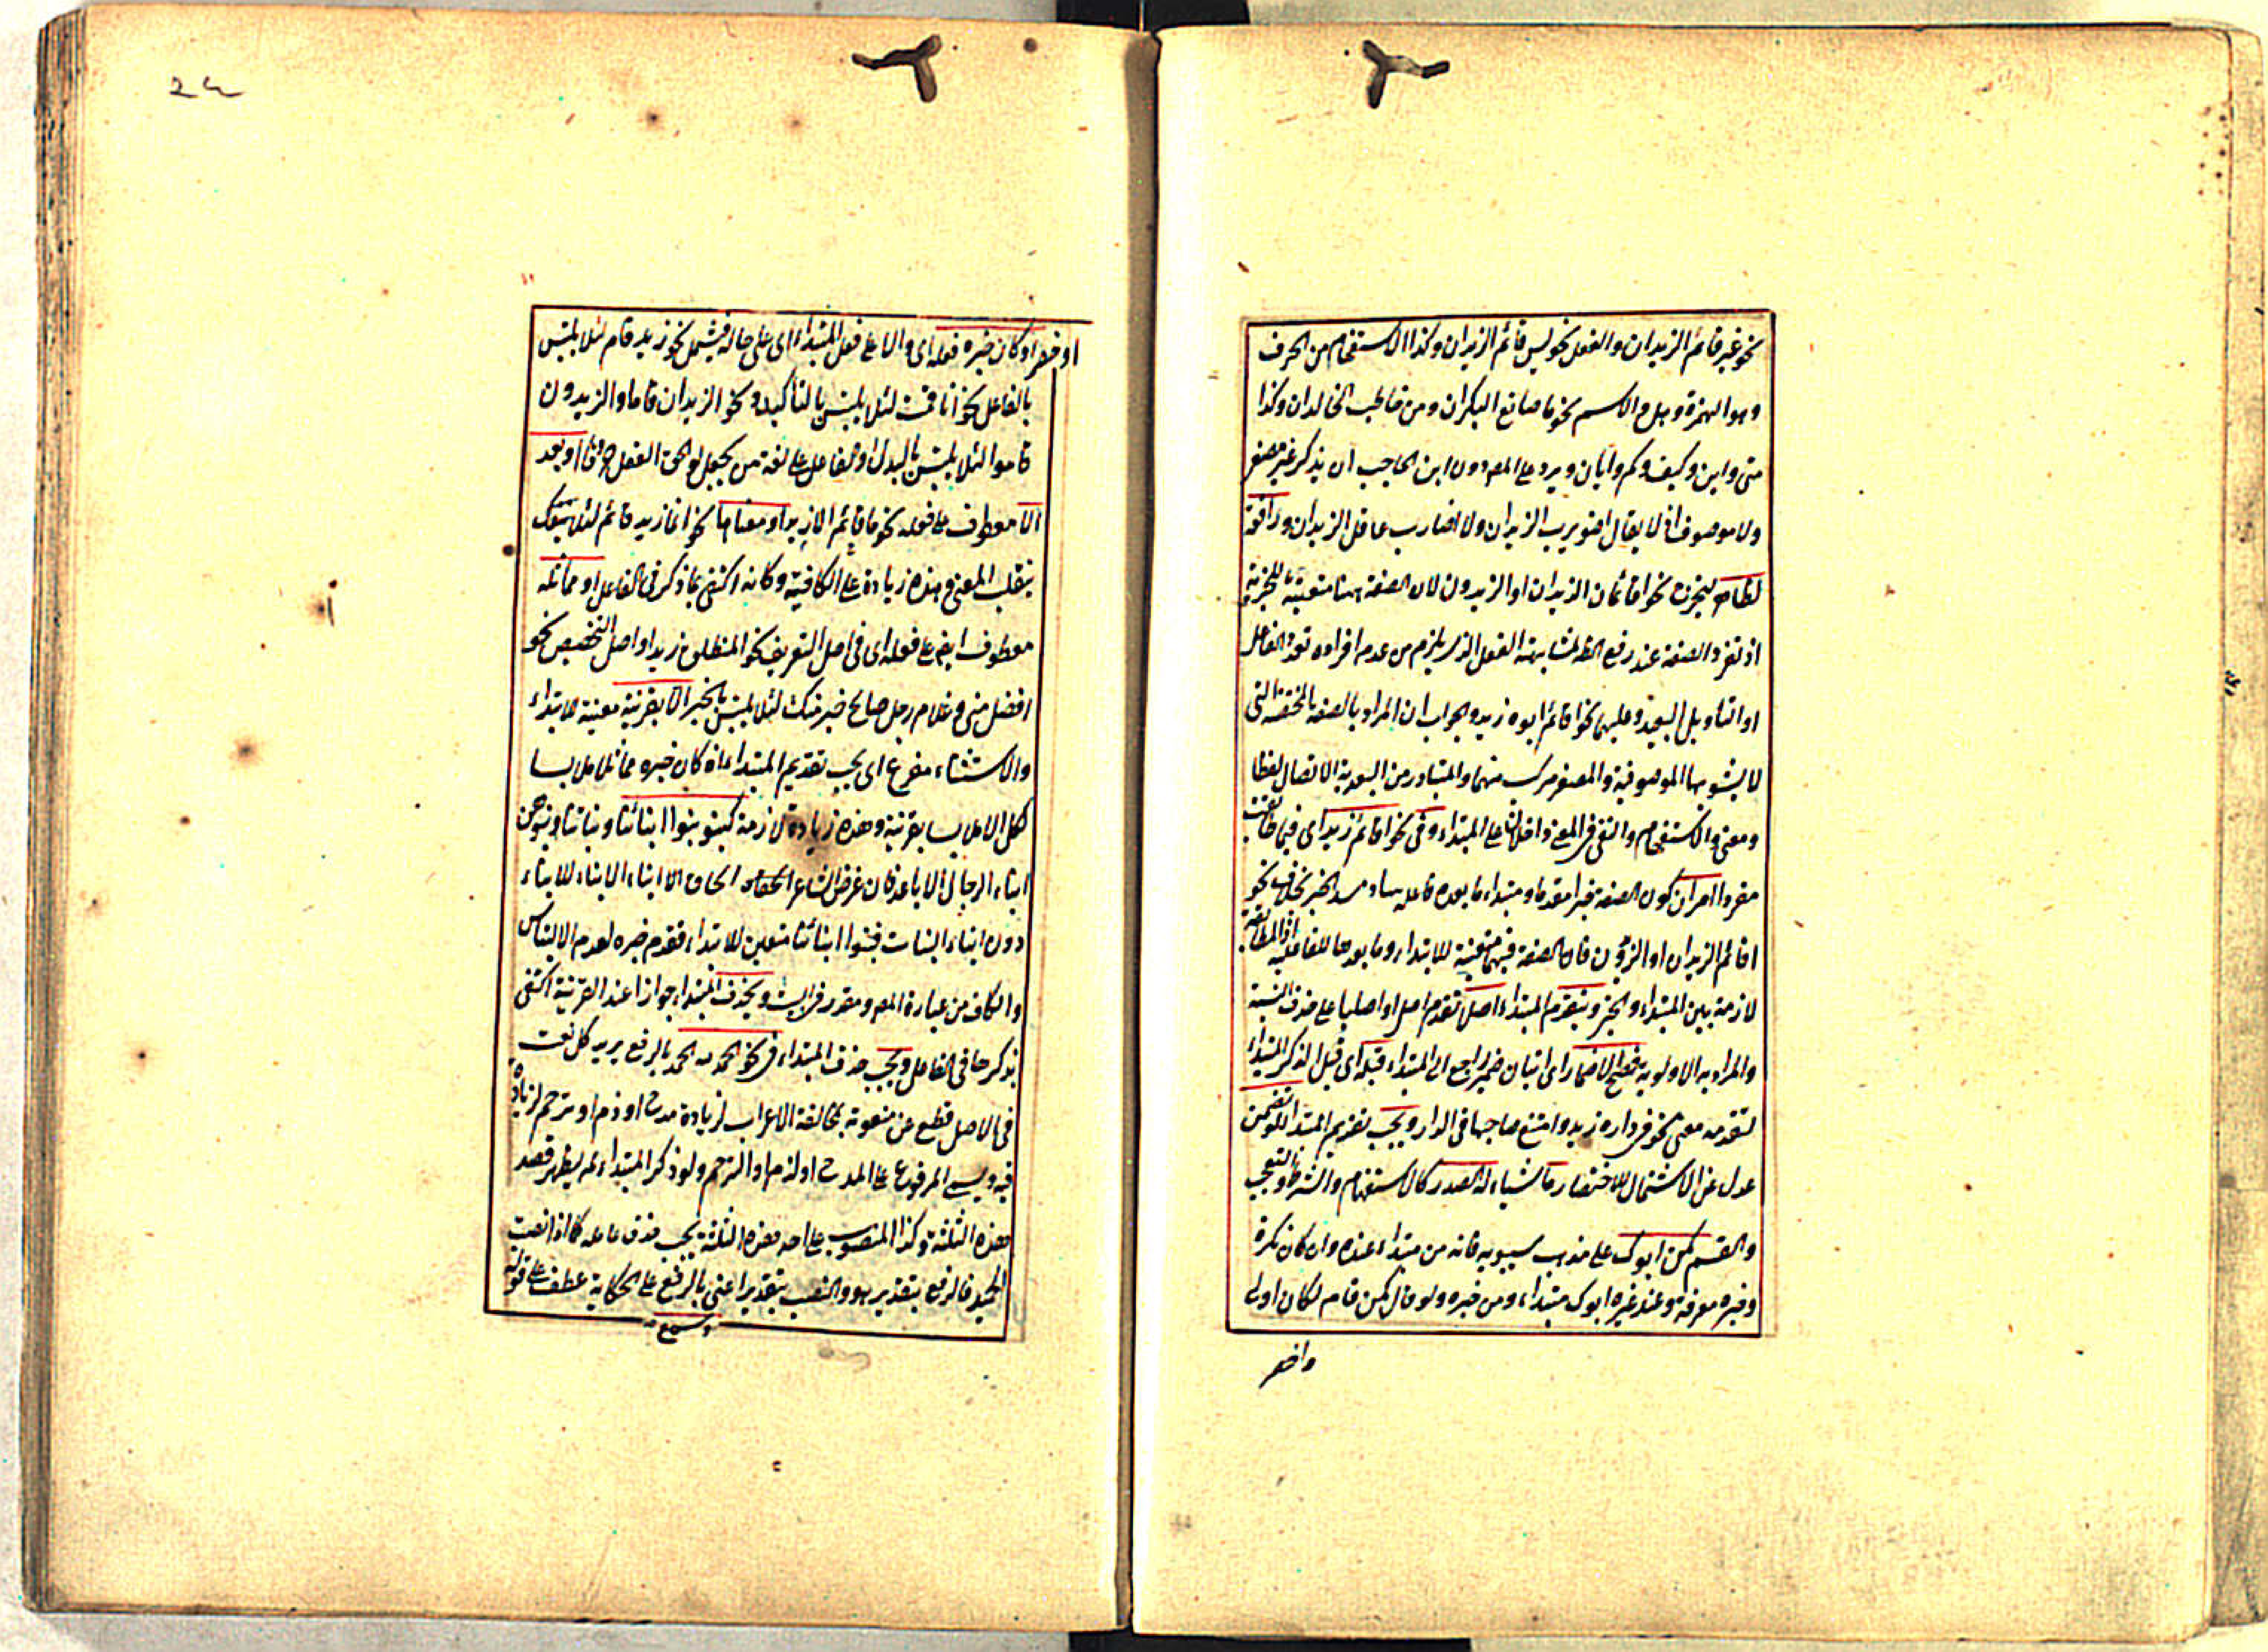 نحو غير قائم الزيدان والفعل نحو ليس قائم الزيدان وكذا الاستفهام من الحرف
وهو الهمزة وهل والاسم نحو ما صانع البكران ومن خاطب الخالدان وكذا
متى واين وكيف وكم وايان ويرد على المص دون ابن الحاجب ان يذكر غير مصغر
ولا موصوف اذ لا يقال اضويرب الزيدان ولا اضارب عاقل الزيدان ورافعة
لظاهر ليخرج نحو اقائمان الزيدان او الزيدون لان الصفة ههنا متعينة للخبرية
اذ تفرد الصفة عند رفع الظ لمشابهة الفعل الذي يلزم من عدم افراده تعدد الفاعل
او التاويل البعيد وعليهما نحو اقائم ابوه زيد والجواب ان المراد بالصفة المحضة التي
لا يشوبها الموصوفية والمصغر مركب منهما والمتبادر من البعدية الاتصال لفظا
ومعنى والاستفهام والنفي في المعنى داخلان على المبتداء وفي نحو اقائم زيد اى فيما طابقت
مفردا امران كون الصفة خبرا مقدما ومبتداء ما بعده فاعله ساد مسد الخبر بخلاف نحو
اقائم الزيدان او الزيدون فان الصفة فيهما متعينة للابتداء وما بعدها للفاعلية اذ المطابقة
لازمة بين المبتداء والخبر وتقدم المبتداء اصل تقدم اصل او اصليا على حذف النسبة
والمراد به الاولوية فصح الاضمار اى اتيان ضمير راجع الى المبتداء قبله اى قبل الذكر المبتداء
لتقدمه معنى نحو في داره زيد وامتنع صاحبها في الدار ويجب تقديم المبتداء المتضمن
عدل عن الاشتمال للاختصار ما شياء له الصدر كالاستفهام والشرط والتعجب
والقسم كمن ابوك على مذهب سيبويه فانه من مبتداء عنده وان كان نكرة
وخبره معرفة وعند غيره ابوك مبتداء ومن خبره ولو قال كمن قام لكان اولى
واخصر
او خصر او كان خبره فعله اى والا على فعل المبتداء اى على حاله فيشمل نحو زيد قام لئلا يلتبس
بالفاعل نحو انا قمت لئلا يلتبس بالتأكيد ونحو الزيدان قاما والزيدون
قاموا لئلا يلتبس بالبدل او الفاعل على لغة من يجعل لواحق الفعل او بعد
الا معطوف على فعله نحو ما قائم الا زيد او معناها نحو انما زيد قائم لئلا
ينقلب المعنى وهذه زيادة على الكافية وكانه اكتفى بما ذكر في الفاعل او مماثله
معطوف ايض على فعله اى في اصل التعريف نحو المنطلق زيد او اصل التخصيص نحو
افضل منى وغلام رجل صالح خير منك لئلا يلتبس بالخبر الا بقرينة معينة للابتداء
والاستثناء مفرغ اى يجب تقديم المبتداء اذا كان خبره مماثلا ملابسا
لكل الا ملابسا بقرينة وهذه زيادة لازمة كبنو بنوا ابنائنا وبناتنا بنوهن
ابناء الرجال الاباعد فان غرض الشاعر الحاق الابناء الابناء للابناء
دون ابناء البنات فبنوا ابنائنا متعين للابتداء فقدم خبره لعدم الالتباس
والكاف من عبارة المص ومقدر في البيت ويحذف المبتداء جوازا عند القرينة اكتفى
بذكرها في الفاعل ويجب حذف المبتداء في نحو الحمد لله الحمد بالرفع يريد كل نعت
في الاصل قطع عن منعوته بمخالفة الاعراب لزيادة مدح او ذم او ترحم لزيادة
فيه ويسمى المرفوع على المدح او الذم او الترحم ولو ذكر المبتداء لم يظهر قصد
هذه الثلثة وكذا المنصوب على احد هذه الثلثة يجب حذف عامله كما اذا نعت
الحميد فالرفع بتقدير هو والنصب بتقدير اعني بالرفع على الحكاية عطف على قوله
وسمع